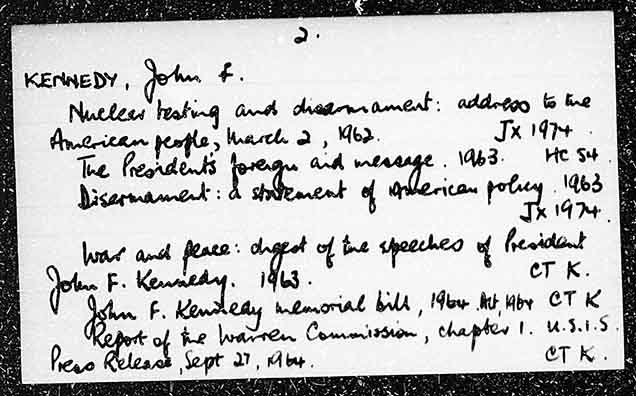 2.
KENNEDY, John F.
Nuclear testing and disarmament: address to the
American people, March 2, 1962. Jx 1974.
The President's foreign aid message. 1963. HC 54.
Disarmament: a statement of American policy. 1963
Jx 1974.
War and peace: digest of the speeches of President
John F. Kennedy. 1963. CT K.
John F. Kennedy memorial bill, 1964. Act, 1964 CT K
Report of the Warren Commission, chapter 1. U.S.I.S.
Press Release, Sept 27, 1964. CT K.